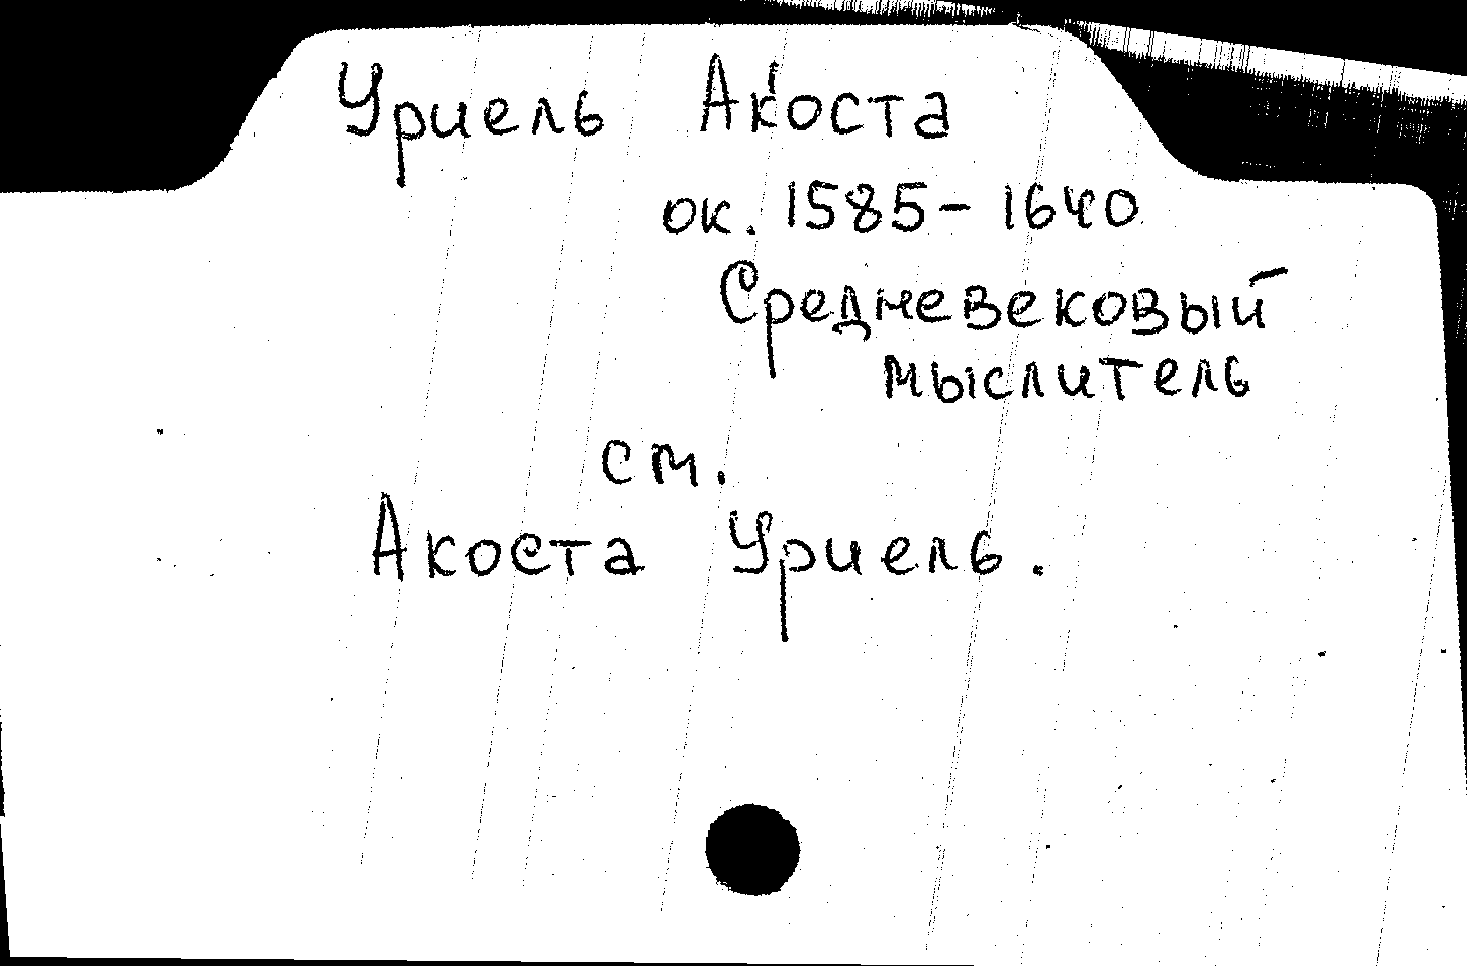 Уриель Акоста
ок. 1585-1640
Средневековый
мыслитель
см.
Акоста Уриель.